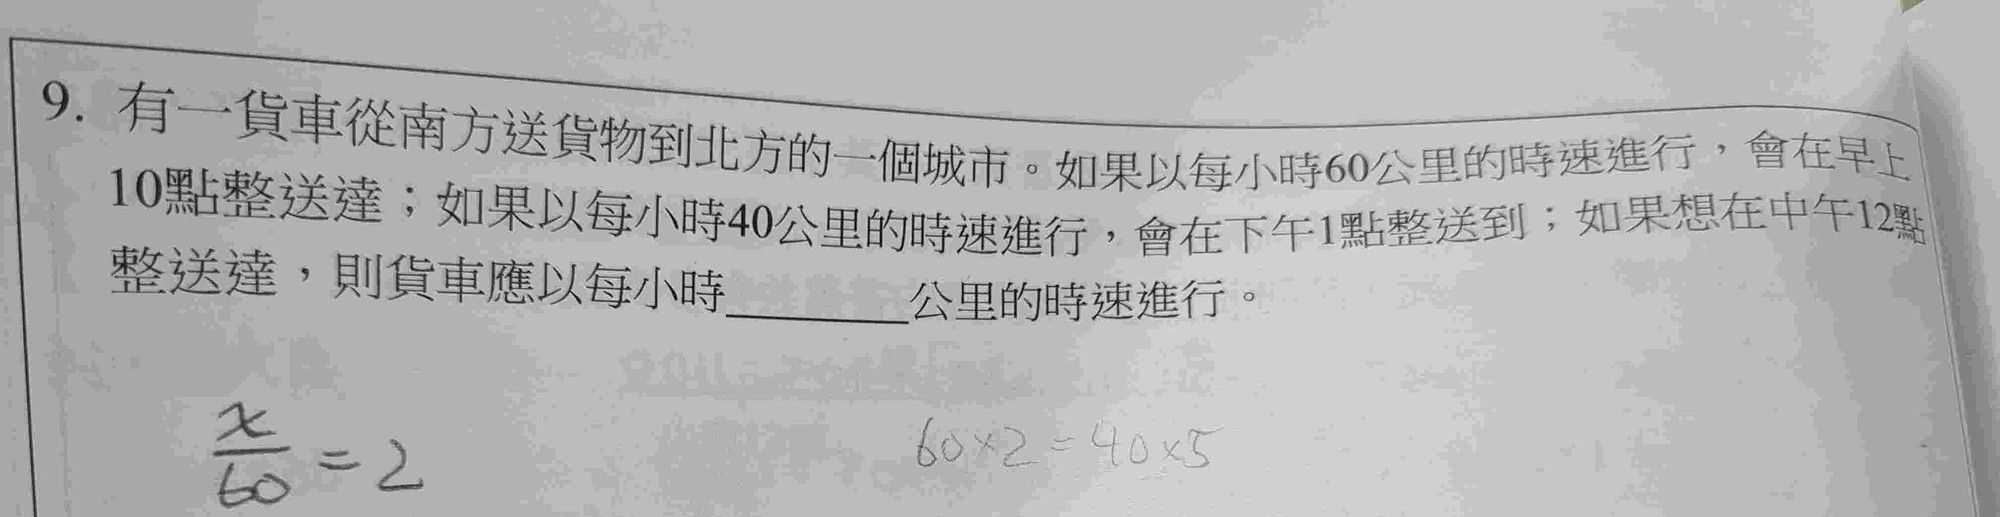 9. 有一貨車從南方送貨物到北方的一個城市。如果以每小時60公里的時速進行，會在早上
10點整送達；如果以每小時40公里的時速進行，會在下午1點整送到；如果想在中午12點
整送達，則貨車應以每小時________公里的時速進行。
x/60 = 2
60×2=40×5